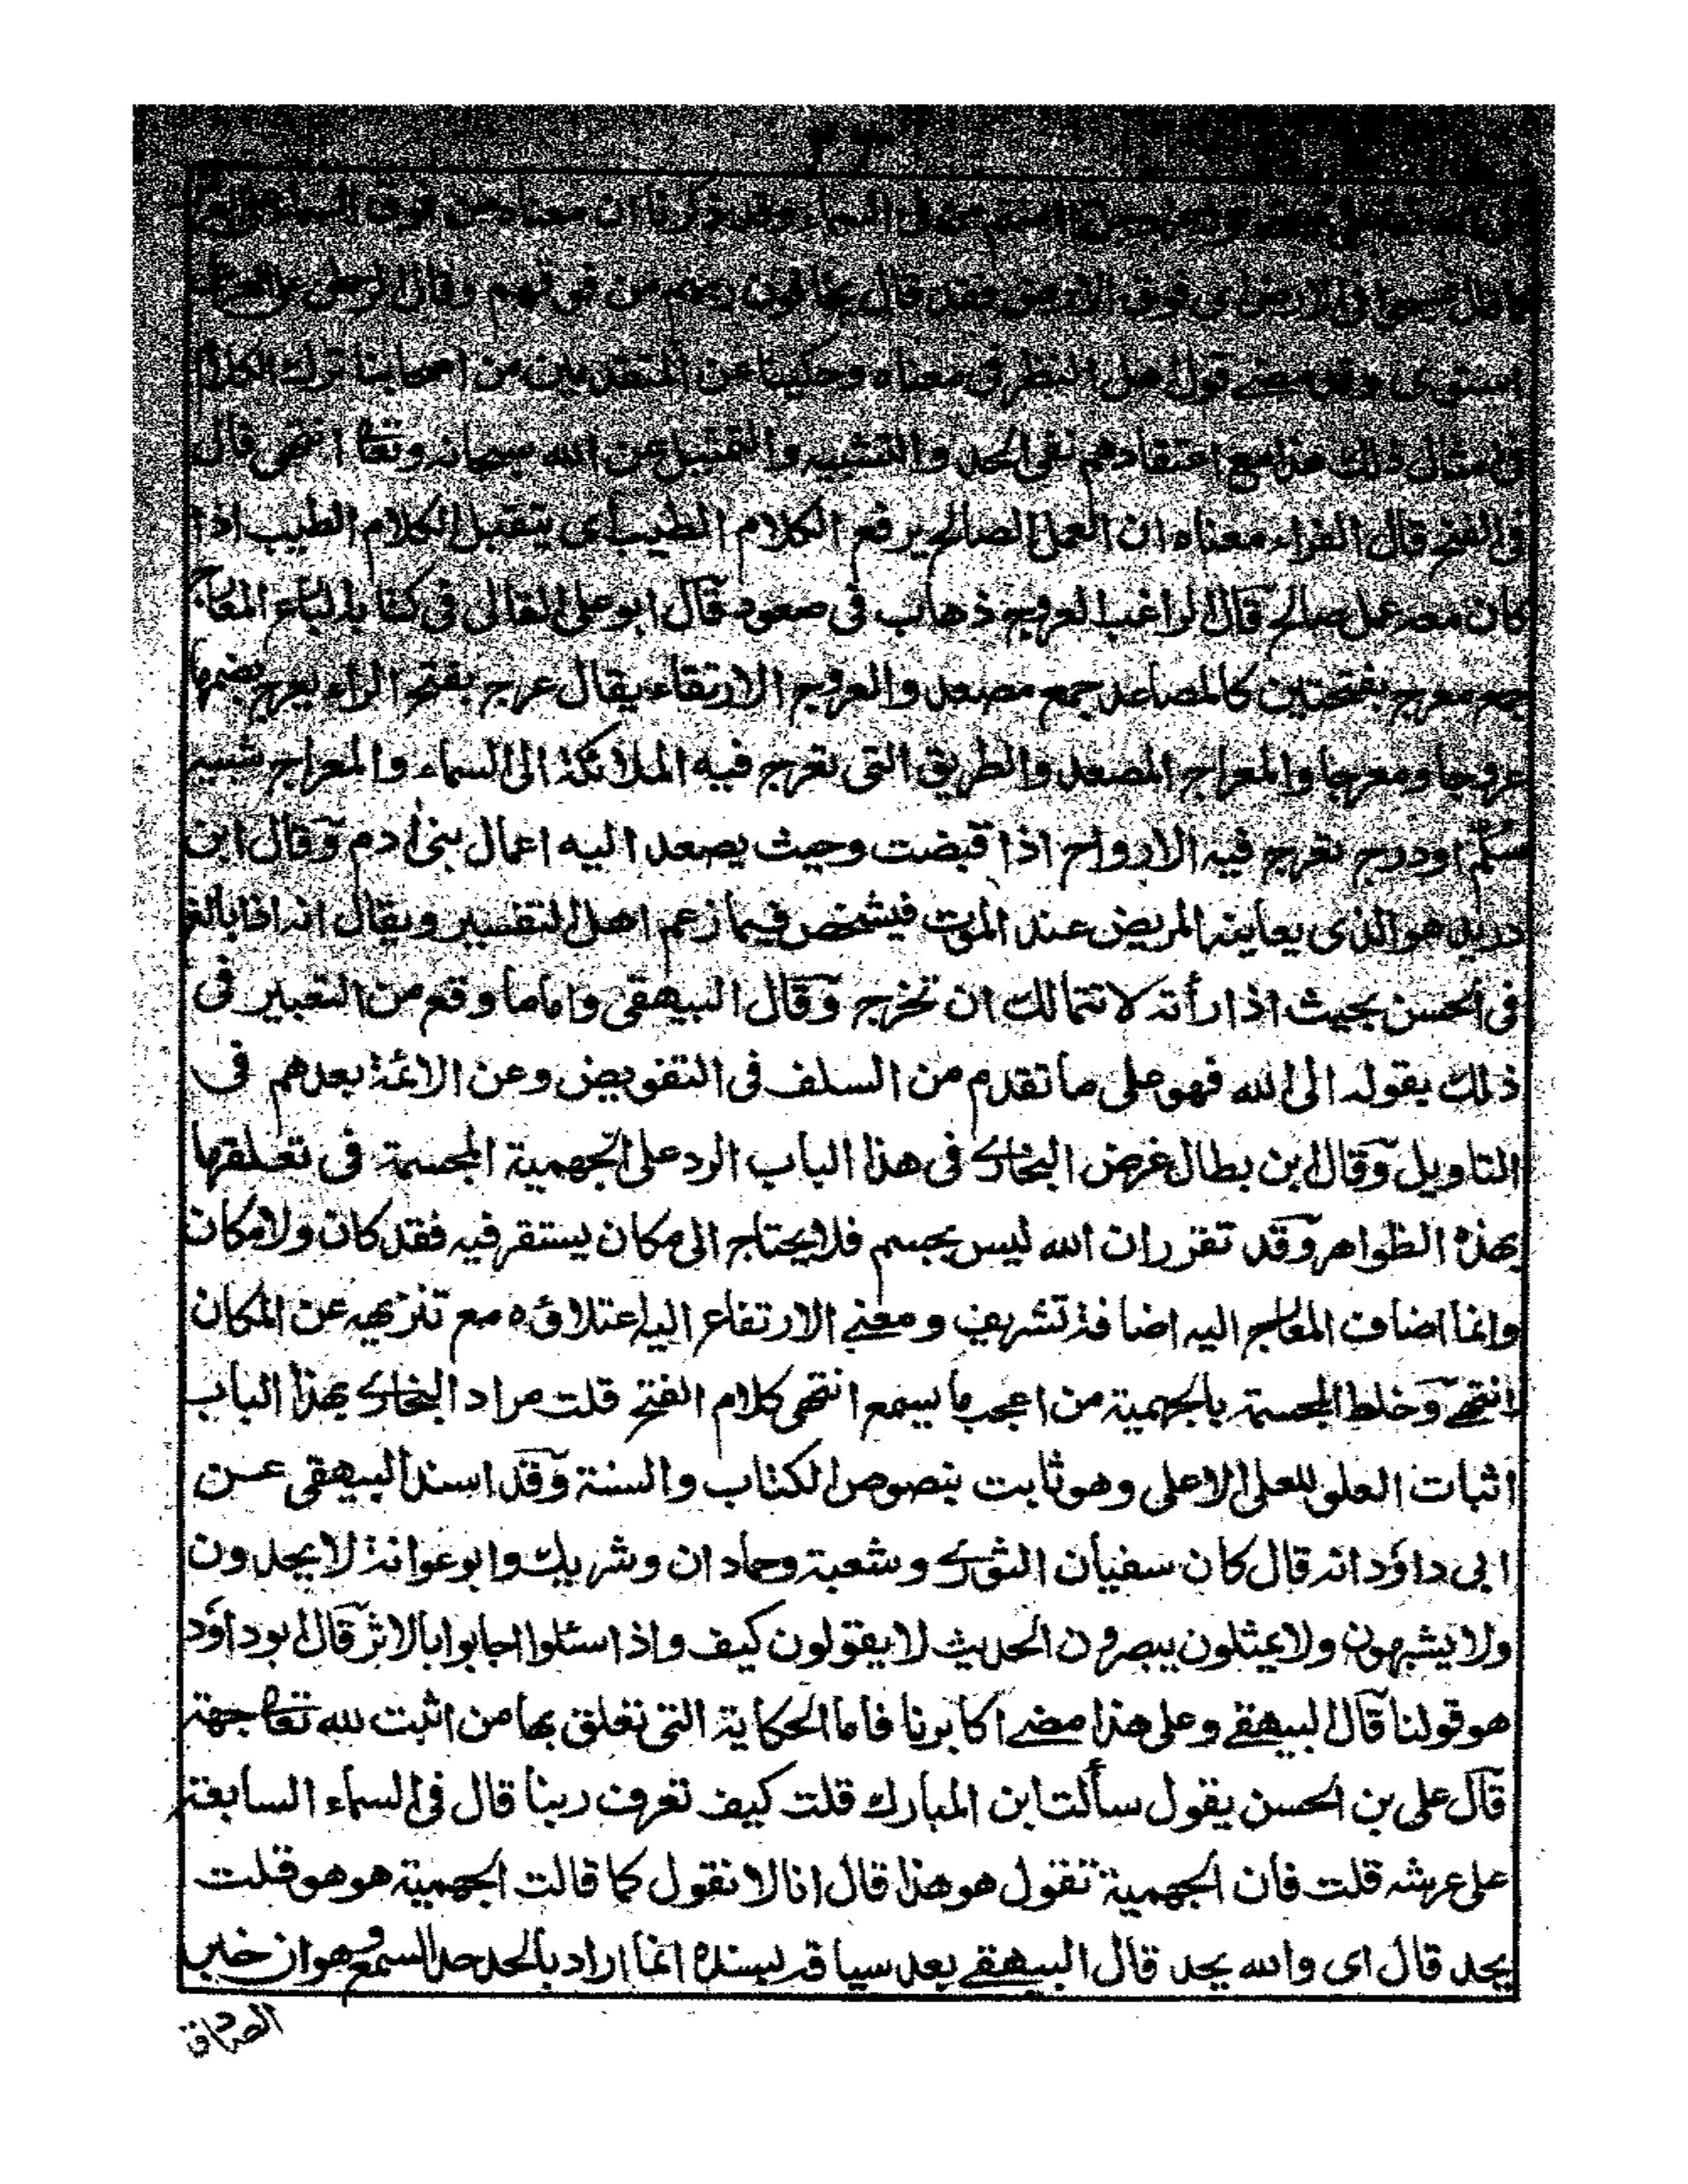 في السماء وقد ذكرنا ان معناه من فوق السماء على العرش
كما قال فسيحوا في الارض اى فوق الارض فقد قال يخافون ربهم من فوقهم وقال الرحمن على العرش
استوى وقد مضے قول اهل النظر في معناه وحكينا عن المتقدمين من اصحابنا ترك الكلام
في امثال ذلك هذا مع اعتقادهم نفى الحد والتشبيه والتمثيل عن الله سبحانه وتعا انتهى قال
فى الفتح قال الفراء معناه ان العمل الصالح يرفع الكلام الطيب اى يتقبل الكلام الطيب اذا
كان معه عمل صالح قال الراغب العروج ذهاب فى صعود قال ابو على القالى فى كتابه البارع المعارج
جمع معرج بفتحتين كالمصاعد جمع مصعد والعروج الارتقاء يقال عرج بفتح الراء يعرج بضمها
عروجا ومعرجا والمعراج المصعد والطريق التى تعرج فيه الملائكة الى السماء والمعراج شبيه
سُلّم او درج تعرج فيه الارواح اذا قبضت وحيث يصعد اليه اعمال بنى أدم وقال ابن
دريد هو الذى يعاينه المريض عند الموت فيشخص فيما زعم اهل التفسير ويقال انه بالغ
فى الحسن بحيث اذا رأته لا تتمالك ان تخرج وقال البيهقى واما ما وقع من التعبير فى
ذلك بقوله الى الله فهو على ما تقدم من السلف فى التفويض وعن الائمة بعدهم فى
التاويل وقال ابن بطال غرض البخارى فى هذا الباب الرد على الجهمية المجسمة فى تعلقها
بهذه الظواهر وقد تقرر ان الله ليس بجسم فلا يحتاج الى مكان يستقر فيه فقد كان ولا مكان
وانما اضاف المعارج اليه اضافة تشريف ومعنے الارتفاع اليه اعتلاؤه مع تنزيهه عن المكان
انتهے وخلط المجسمة بالجهمية من اعجب ما يسمع انتهى كلام الفتح قلت مراد البخارى بهذا الباب
اثبات العلو للعلى الاعلى وهو ثابت بنصوص الكتاب والسنة وقد اسند البيهقى عن
ابى داؤد انه قال كان سفيان الثورى وشعبة وحمادان وشريك وابو عوانة لا يحدون
ولا يشبهون ولا يمثلون يبصرون الحديث لا يقولون كيف واذا سئلوا اجابوا بالاثر قال ابو داؤد
هو قولنا قال البيهقے وعلى هذا مضے اكابرنا فاما الحكاية التى تعلق بها من اثبت لله تعا جهة
قال على بن الحسن يقول سألت ابن المبارك قلت كيف نعرف ربنا قال فى السماء السابعة
على عرشه قلت فان الجهمية تقول هو هذا قال انا لا نقول كما قالت الجهمية هو هو قلت
بحد قال اى والله بحد قال البيهقے بعد سياقه لسنده انما اراد بالحد حد السمع وهو ان خبر
الصادق